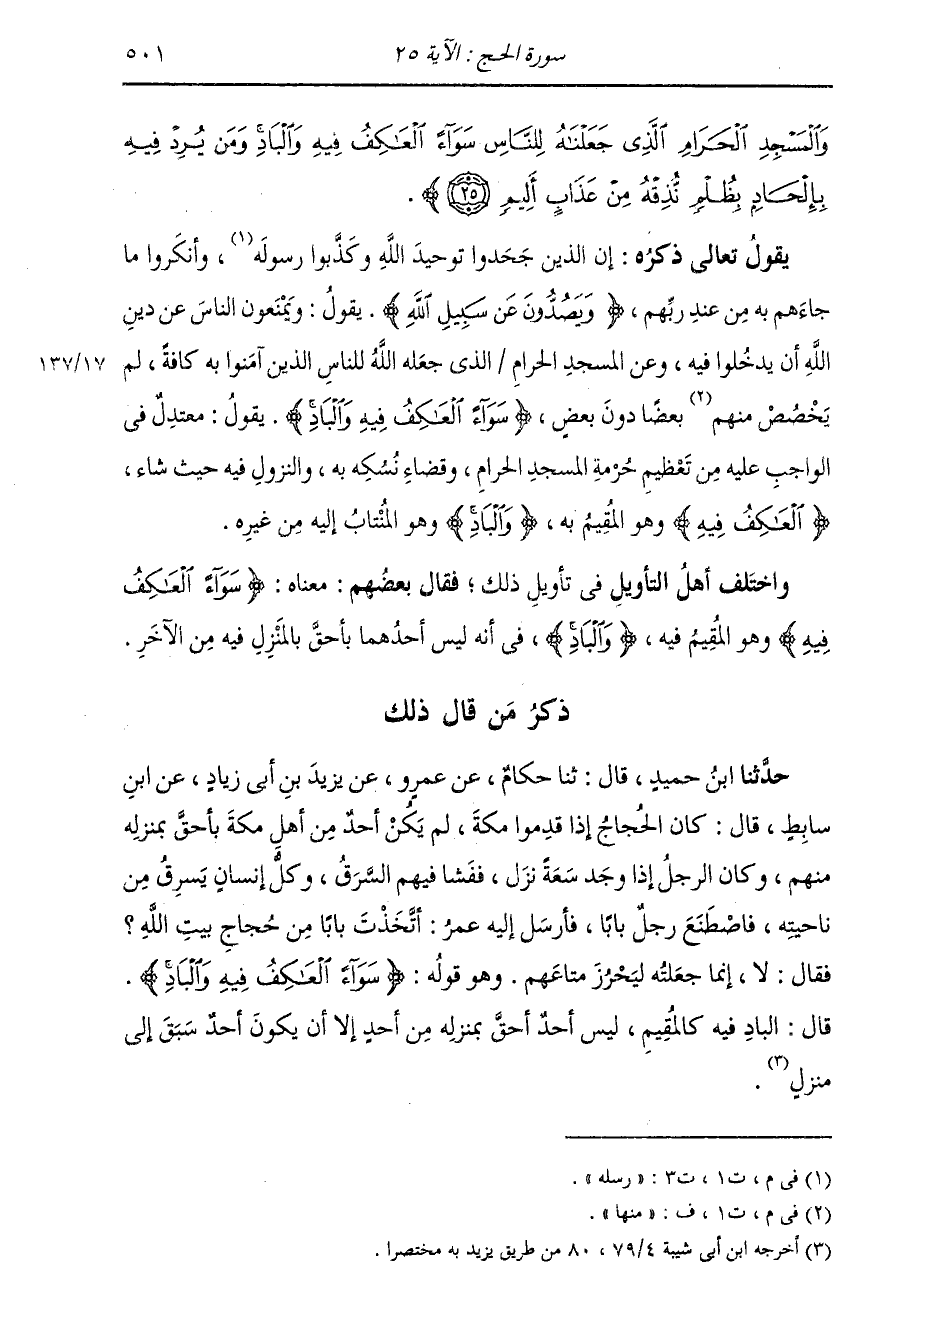 سورة الحج : الآية ٢٥ ٥٠١
وَٱلْمَسْجِدِ ٱلْحَرَامِ ٱلَّذِى جَعَلْنَٰهُ لِلنَّاسِ سَوَآءً ٱلْعَٰكِفُ فِيهِ وَٱلْبَادِۚ وَمَن يُرِدْ فِيهِ
بِإِلْحَادِۭ بِظُلْمٍ نُّذِقْهُ مِنْ عَذَابٍ أَلِيمٍ ﴿٢٥﴾ ﴾ .
يقولُ تعالى ذكرُه : إن الذين جَحَدوا توحيدَ اللَّهِ وكَذَّبوا رسولَه(١) ، وأنكَروا ما
جاءَهم به مِن عندِ ربِّهم ، ﴿ وَيَصُدُّونَ عَن سَبِيلِ ٱللَّهِ ﴾ . يقولُ : ويَمْنَعون الناسَ عن دينِ
اللَّهِ أن يدخُلوا فيه ، وعن المسجدِ الحرامِ / الذى جعَله اللَّهُ للناسِ الذين آمَنوا به كافةً ، لم ١٣٧/١٧
يَخْصُصْ منهم(٢) بعضًا دونَ بعضٍ ، ﴿ سَوَآءً ٱلْعَٰكِفُ فِيهِ وَٱلْبَادِۚ ﴾ . يقولُ : معتدِلٌ فى
الواجبِ عليه مِن تَعْظيمِ حُرْمةِ المسجدِ الحرامِ ، وقضاءِ نُسُكِه به ، والنزولِ فيه حيث شاء ،
﴿ ٱلْعَٰكِفُ فِيهِ ﴾ وهو المُقِيمُ به ، ﴿ وَٱلْبَادِۚ ﴾ وهو المُنْتابُ إليه مِن غيرِه .
واختَلف أهلُ التأويلِ فى تأويلِ ذلك ؛ فقال بعضُهم : معناه : ﴿ سَوَآءً ٱلْعَٰكِفُ
فِيهِ ﴾ وهو المُقِيمُ فيه ، ﴿ وَٱلْبَادِۚ ﴾ ، فى أنه ليس أحدُهما بأحقَّ بالمَنْزِلِ فيه مِن الآخَرِ .
ذكرُ مَن قال ذلك
حدَّثنا ابنُ حميدٍ ، قال : ثنا حكامٌ ، عن عمرٍو ، عن يزيدَ بنِ أبى زيادٍ ، عن ابنِ
سابِطٍ ، قال : كان الحُجاجُ إذا قدِموا مكةَ ، لم يَكُنْ أحدٌ مِن أهلِ مكةَ بأحقَّ بمنزلِه
منهم ، وكان الرجلُ إذا وجَد سَعَةً نزَل ، ففَشا فيهم السَّرَقُ ، وكلُّ إنسانٍ يَسرِقُ مِن
ناحيتِه ، فاصْطَنَعَ رجلٌ بابًا ، فأرسَل إليه عمرُ : أتَّخَذْتَ بابًا مِن حُجاجِ بيتِ اللَّهِ ؟
فقال : لا ، إنما جعَلتُه ليَحْرُزَ متاعَهم . وهو قولُه : ﴿ سَوَآءً ٱلْعَٰكِفُ فِيهِ وَٱلْبَادِۚ ﴾ .
قال : البادِ فيه كالمُقِيمِ ، ليس أحدٌ أحقَّ بمنزلِه مِن أحدٍ إلا أن يكونَ أحدٌ سَبَقَ إلى
منزلٍ(٣) .
(١) فى م ، ت١ ، ت٣ : « رسله » .
(٢) فى م ، ت١ ، ف : « منها » .
(٣) أخرجه ابن أبى شيبة ٧٩/٤ ، ٨٠ من طريق يزيد به مختصرا .